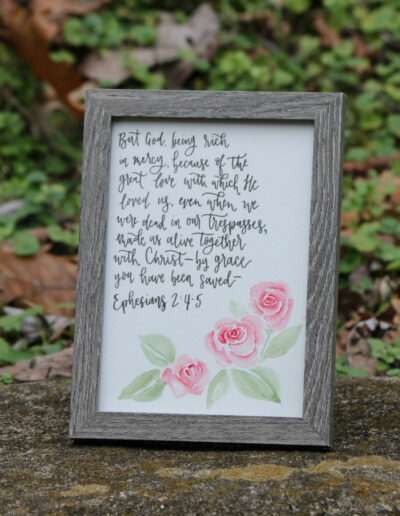 But God, being rich
in mercy, because of the
great love with which He
loved us, even when we
were dead in our trespasses,
made us alive together
with Christ—by grace
you have been saved—
Ephesians 2:4-5